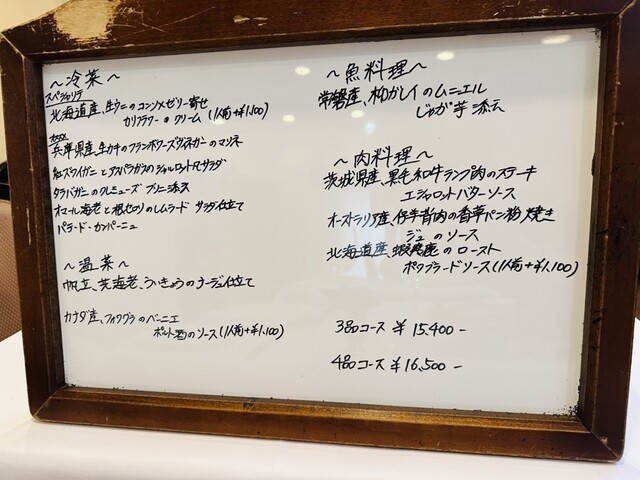 ～冷菜～
スペシャリテ
北海道産、生ウニのコンソメゼリー寄せ
カリフラワーのクリーム (1人前+¥1,100)
兵庫県産、生カキのフランボワーズヴィネガーのマリネ
紅ズワイガニとアスパラガスのシャルロット サラダ
タラバガニのクレミューズ ブリニ添え
オマール海老と根セロリのレムラード サラダ仕立て
パテ・ド・カンパーニュ
～温菜～
帆立、芝海老、ういきょうのナージュ仕立て
カナダ産、フォワグラのベーニエ
ポルト酒のソース (1人前+¥1,100)
～魚料理～
常磐産、柳カレイのムニエル
じゃが芋添え
～肉料理～
茨城県産、黒毛和牛ランプ肉のステーキ
エシャロットバターソース
オーストラリア産、仔羊背肉の香草パン粉焼き
ジュのソース
北海道産、蝦夷鹿のロースト
ポワブラードソース (1人前+¥1,100)
3品コース ¥15,400-
4品コース ¥16,500-